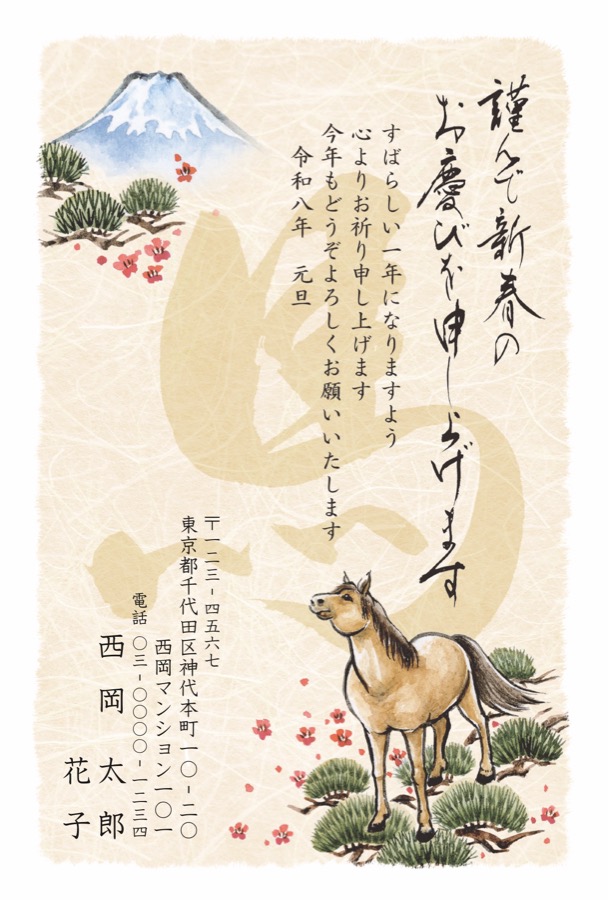 謹んで新春の
お慶びを申し上げます
すばらしい一年になりますよう
心よりお祈り申し上げます
今年もどうぞよろしくお願いいたします
令和八年　元旦
〒一二三-四五六七
東京都千代田区神代本町一〇-二〇
西岡マンション一〇一
電話　〇三-〇〇〇〇-一二三四
西岡　太郎
花子
馬